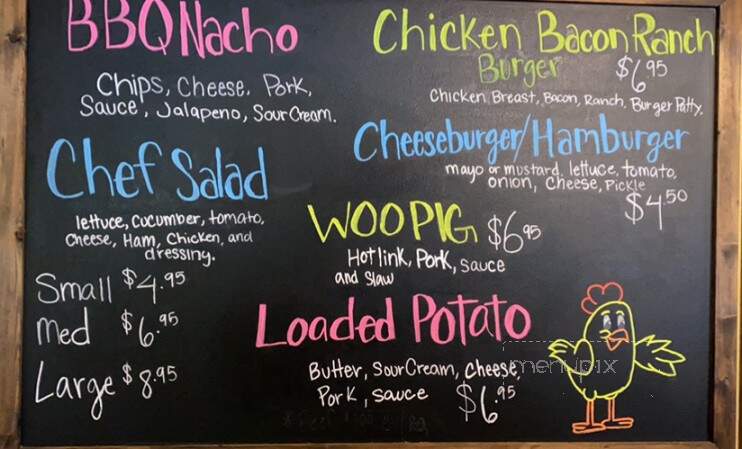 BBQ Nacho
Chips, Cheese, Pork,
Sauce, Jalapeno, Sour Cream.
Chef Salad
lettuce, cucumber, tomato,
Cheese, Ham, Chicken, and
dressing.
Small $4.95
Med $6.95
Large $8.95
Chicken Bacon Ranch
Burger $6.95
Chicken Breast, Bacon, Ranch, Burger Patty.
Cheeseburger/Hamburger
mayo or mustard, lettuce, tomato,
onion, Cheese, Pickle
$4.50
WOO PIG $6.95
Hotlink, Pork, sauce
and Slaw
Loaded Potato
Butter, Sour Cream, cheese,
Pork, sauce $6.95
menupix